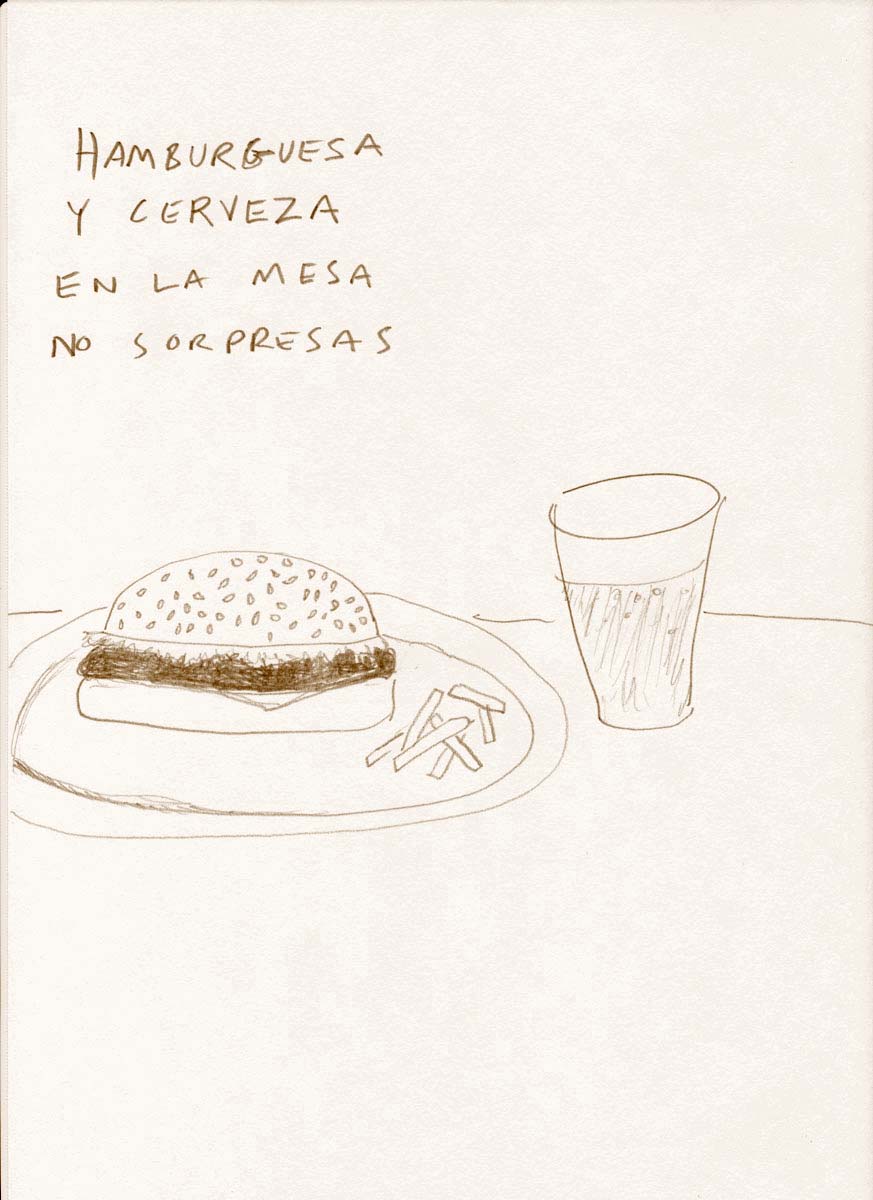 HAMBURGUESA
Y CERVEZA
EN LA MESA
NO SORPRESAS